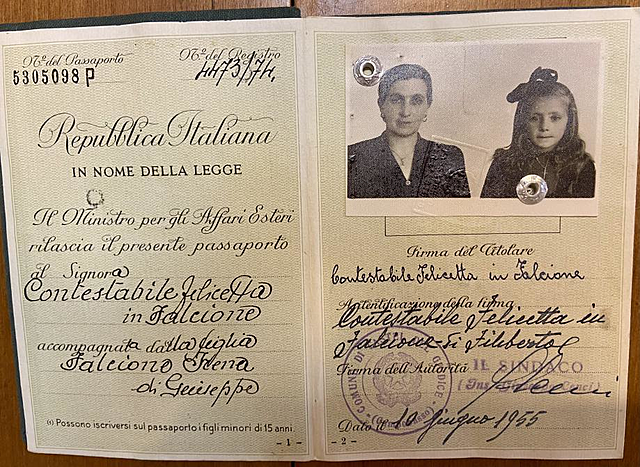 N.º del Passaporto
5305098 P
N.º del Registro
4473/74.
Repubblica Italiana
IN NOME DELLA LEGGE
Il Ministro per gli Affari Esteri
rilascia il presente passaporto
al Signora
Contestabile Felicetta
in Falcione
accompagnata dalla figlia
Falcione Irena
di Geiuseppe
(1) Possono iscriversi sul passaporto i figli minori di 15 anni.
- 1 -
Firma del Titolare
Contestabile Felicetta in Falcione
Autentificazione della firma
Contestabile Felicetta in
Falcione di Filiberto
Firma dell'Autorità
IL SINDACO
COMUNE DI
Data 10 giugno 1955
- 2 -